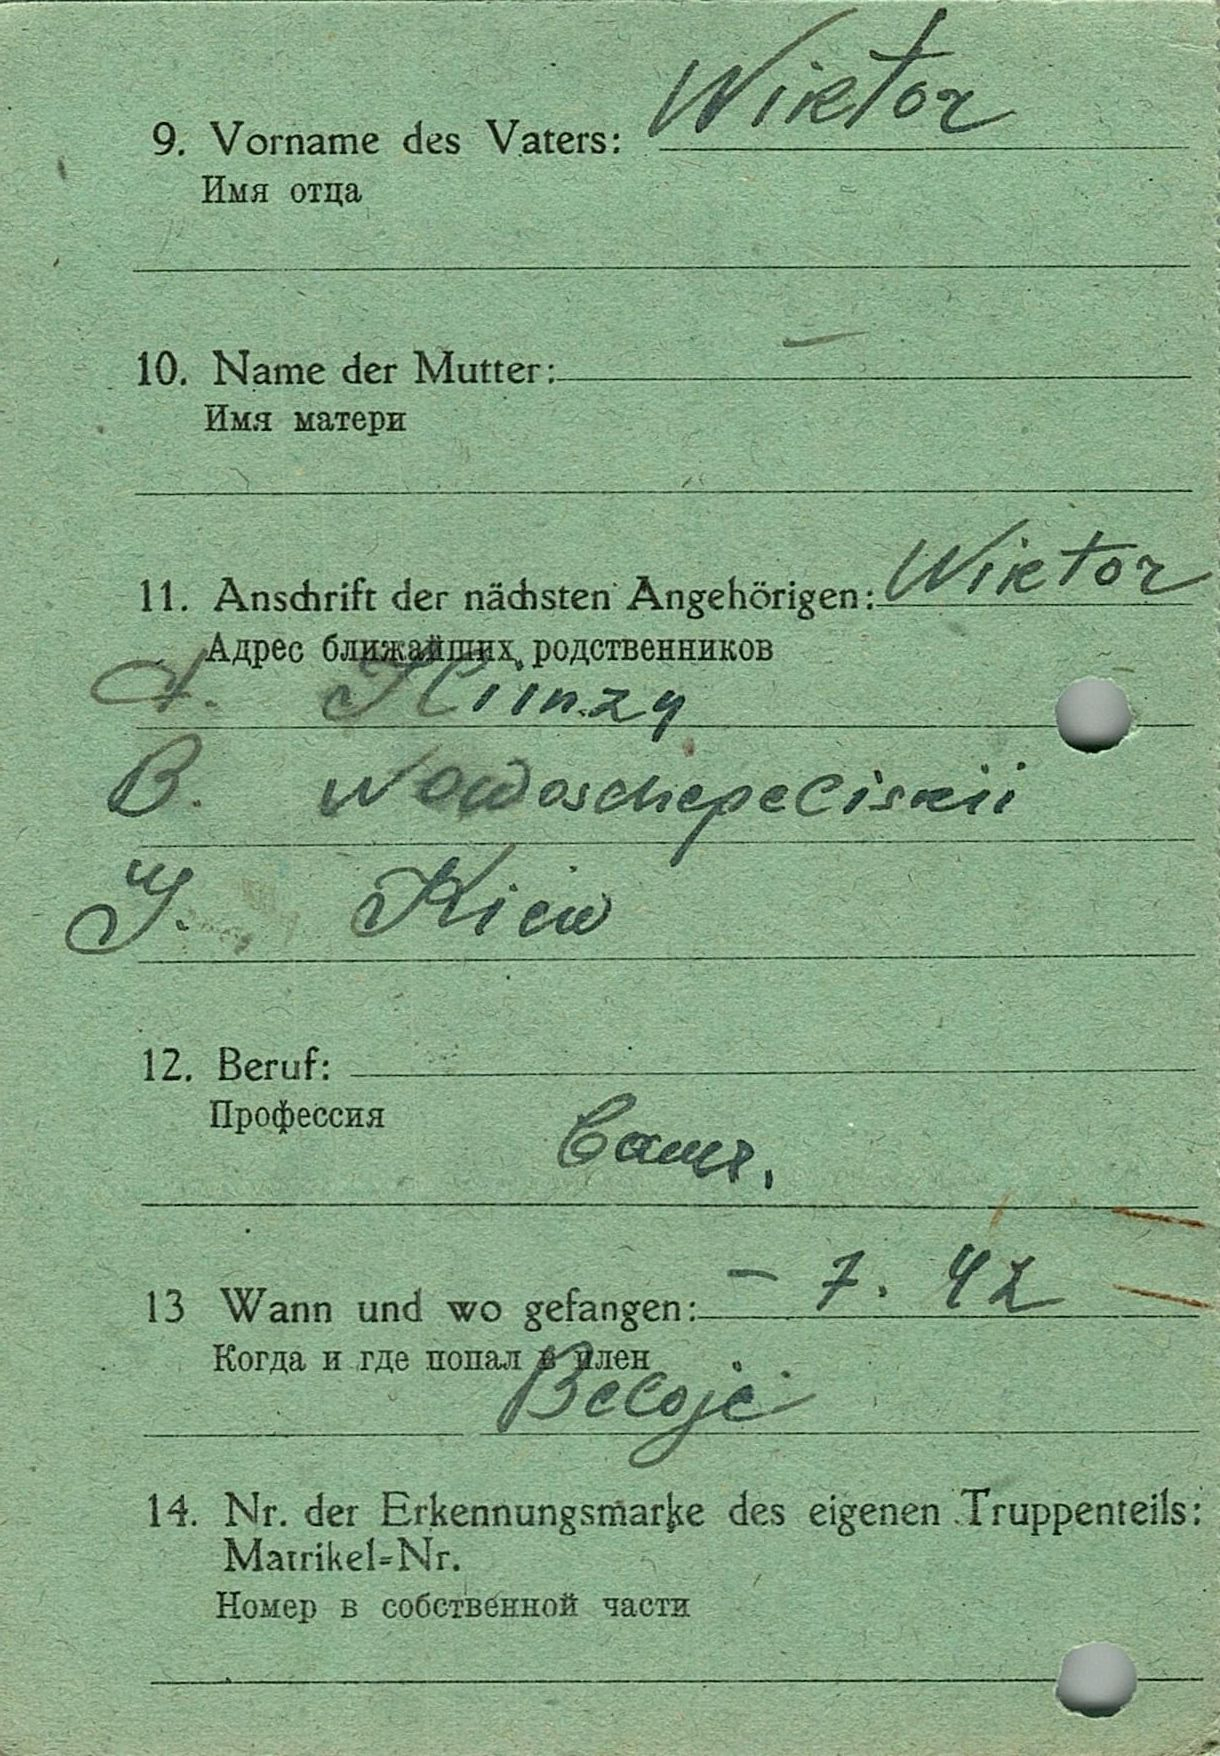 9. Vorname des Vaters: Wiktor
Имя отца
10. Name der Mutter: —
Имя матери
11. Anschrift der nächsten Angehörigen: Wiktor
Адрес ближайших родственников
B. Nowoschepeliskii
Kiew
12. Beruf:
Профессия
13 Wann und wo gefangen: – 7. 42
Когда и где попал в плен
Beloje
14. Nr. der Erkennungsmarke des eigenen Truppenteils:
Matrikel=Nr.
Номер в собственной части